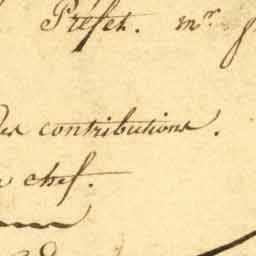 Préfet. mr
des contributions.
chef.